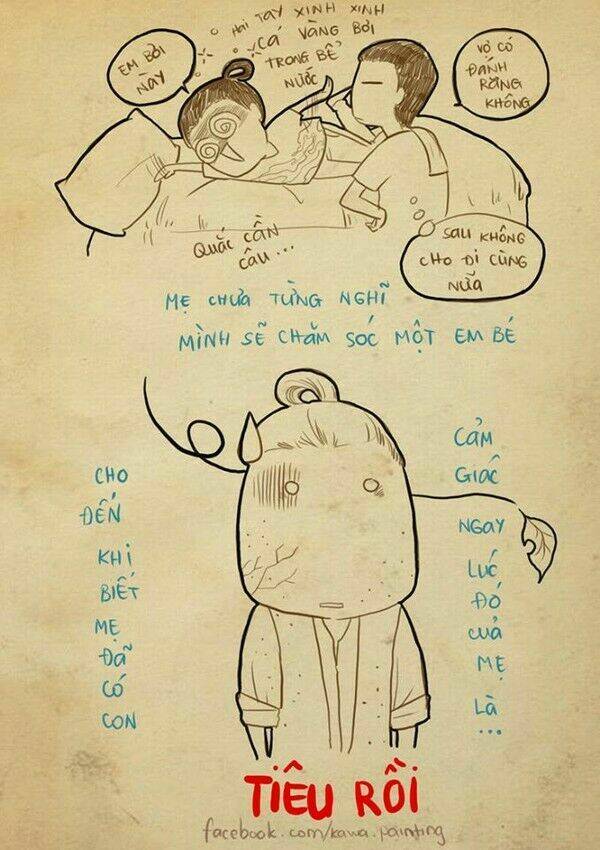 EM BƠI
NÀY
HAI TAY XINH XINH
CÁ VÀNG BƠI
TRONG BỂ
NƯỚC
VỢ CÓ
ĐÁNH
RĂNG
KHÔNG
QUẮC CẦN
CÂU ...
SAU KHÔNG
CHO ĐI CÙNG
NỮA
MẸ CHƯA TỪNG NGHĨ
MÌNH SẼ CHĂM SÓC MỘT EM BÉ
CHO
ĐẾN
KHI
BIẾT
MẸ
ĐÃ
CÓ
CON
CẢM
GIÁC
NGAY
LÚC
ĐÓ
CUẢ
MẸ
LÀ
...
TIÊU RỒI
facebook.com/kawa.painting